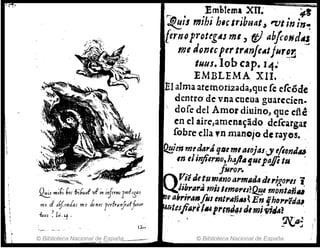 Quis mihi hoc tribuat vt in inferno protegas
me et abscondas me donec pertranseat furor
tuus? Iob. 14.
© Biblioteca Nacional de España
Emblema XII.
Quis mihi hoc tribuat, vt in in-
ferno protegas me, & abscondas
me donec pertranseat furor
tuus. Iob cap. 14.
EMBLEMA XII.
El alma atemorizada, que se escõde
dentro de vna cueua guarecien-
dose del Amor diuino, que esté
en el aire, amenaçādo descargar
sobre ella vn manojo de rayos.
Quien me dará que me acojas, y escondas
en el infierno, hasta que passe tu
furor.
Qvié de tu mano armada de rigores
librarà mis temores? Que montañas
me abriran sus entrañas? En
mi vida?
© Biblioteca Nacional de España